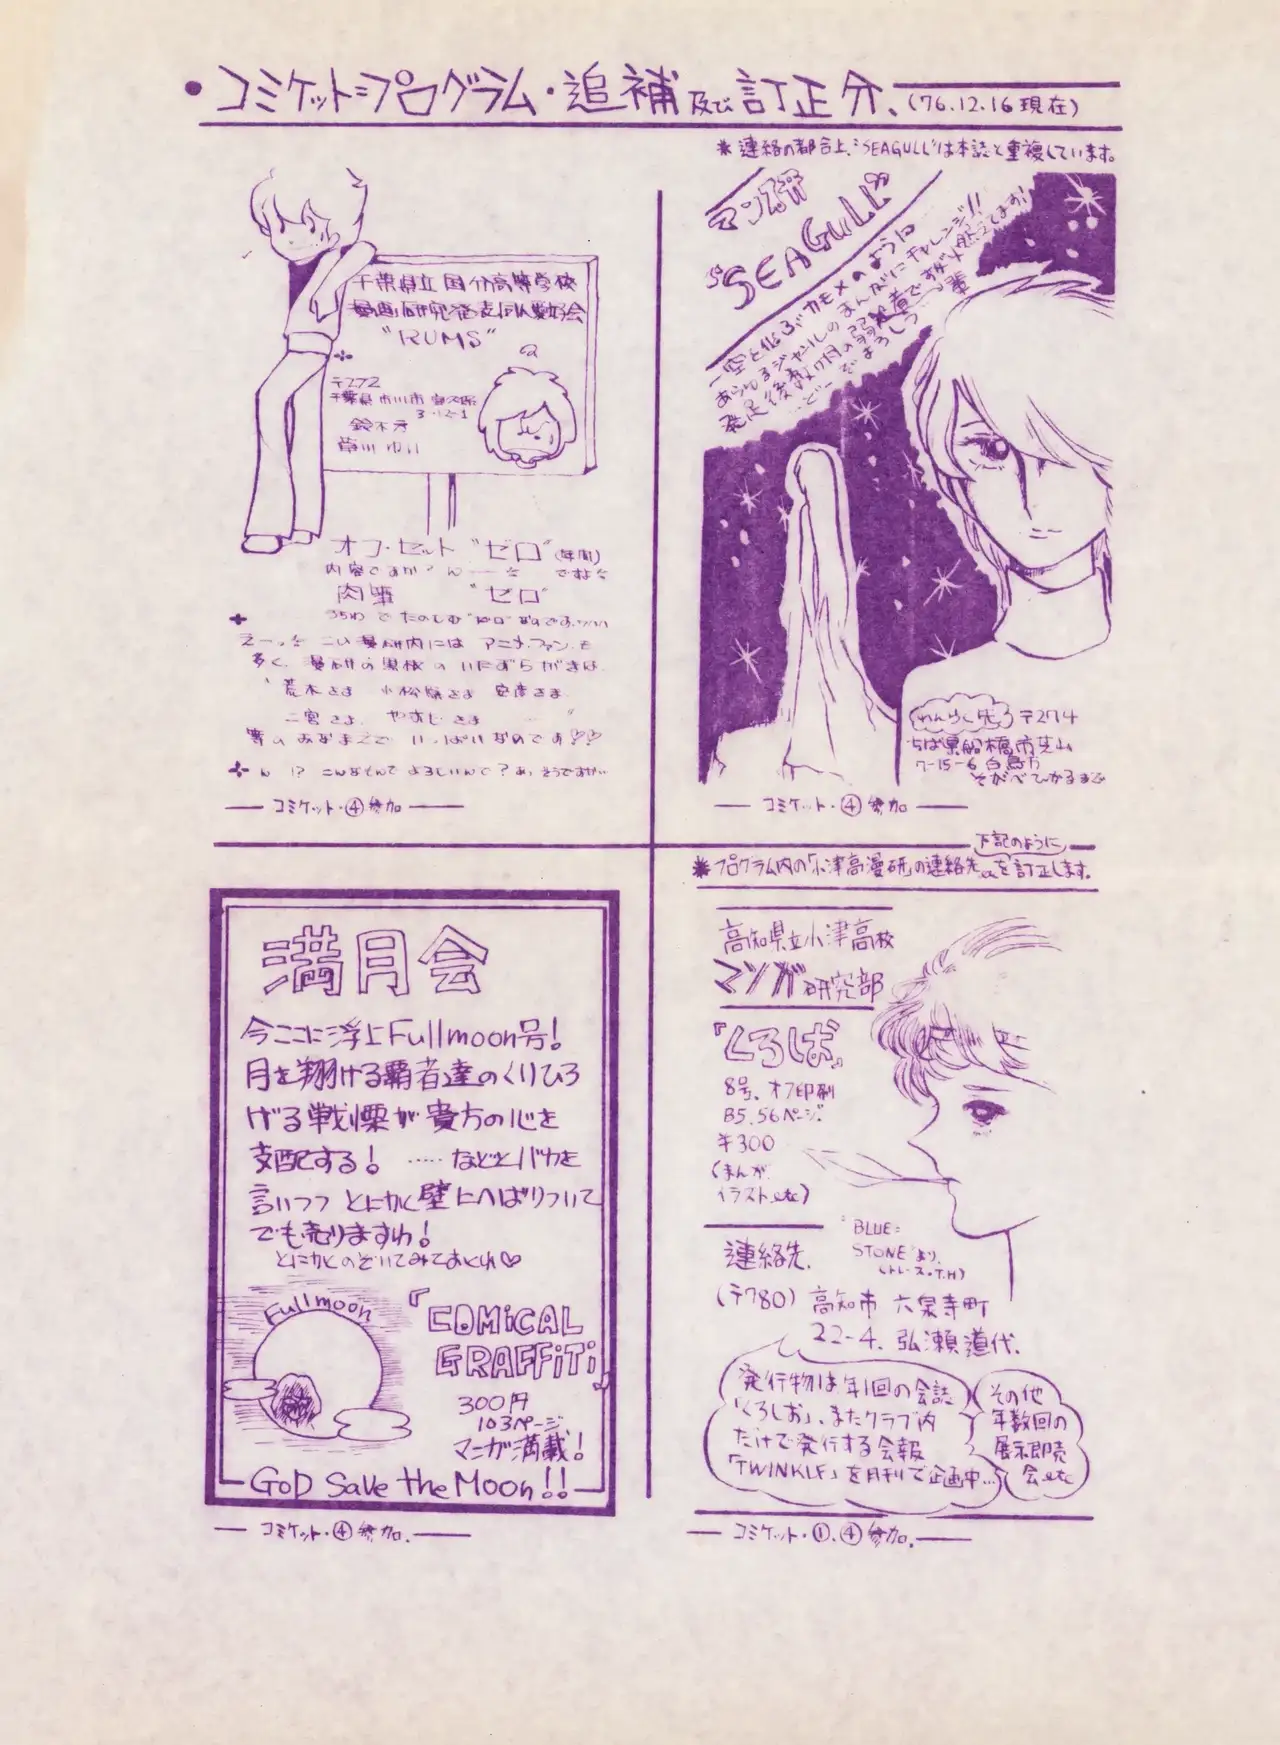 ・コミケット=プログラム・追補及び訂正分、(76.12.16現在)
＊連絡の都合上、"SEAGULL"は本誌と重複しています。
千葉県立国分高等学校
漫画研究発表同人愛好会
"RUMS"
〒272
千葉県市川市
3-12-1
鈴木方
草川ゆい
オフ・セット "ゼロ"(年間)
内容ですか?ん――☆ ですよ☆
肉筆 "ゼロ"
うちわでたのしむ"ゼロ"なのです。
えーっ☆こい漫研内には アニメ・ファン・も
多く、漫研の奥様のいたずらがきは
荒木さま 小松原さま 安彦さま
二宮さま やすじさま
等のみなまえで いっぱいなのです♡♡
ん!?こんなもんでよろしいんで?あ、そうですか…
― コミケット・④参加 ―
マンガ
"SEAGULL"
―空と伝ぶカモメのように
あらゆるジャンルのまんがにチャレンジ!!
発足後数ヶ月の弱輩者ですが〆燃えてます!
…どーぞよろしう…
れんらく先 〒274
ちば県船橋市芝山
7-15-6 白鳥方
そがべひかるまで
― コミケット・④参加 ―
満月会
今ここに浮上Fullmoon号!
月を翔ける覇者達のくりひろ
げる戦慄が貴方の心を
支配する! ……などとバカを
言いつつ とにかく壁にへばりついて
でも売りますわ!
とにかくのぞいてみておくれ♡
Fullmoon
『COMiCAL
GRAFFiTi』
300円
103ページ
マニガ満載!
GoD Save the Moon!!
― コミケット・④参加.―
＊プログラム内の「小津高漫研」の連絡先を下記のように訂正します。
高知県立小津高校
マンガ研究部
『くろしお』
8号、オフ印刷
B5.56ページ.
¥300
(まんが、
イラスト、etc)
"BLUE=
STONE"より、
(トレス・T.H)
連絡先、
(〒780) 高知市 六泉寺町
22-4. 弘瀬道代.
発行物は年1回の会誌
「くろしお」、またクラブ内
だけで発行する会報
「TWINKLE」を月刊で企画中…
その他
年数回の
展示即売
会 etc
― コミケット・①、④参加.―